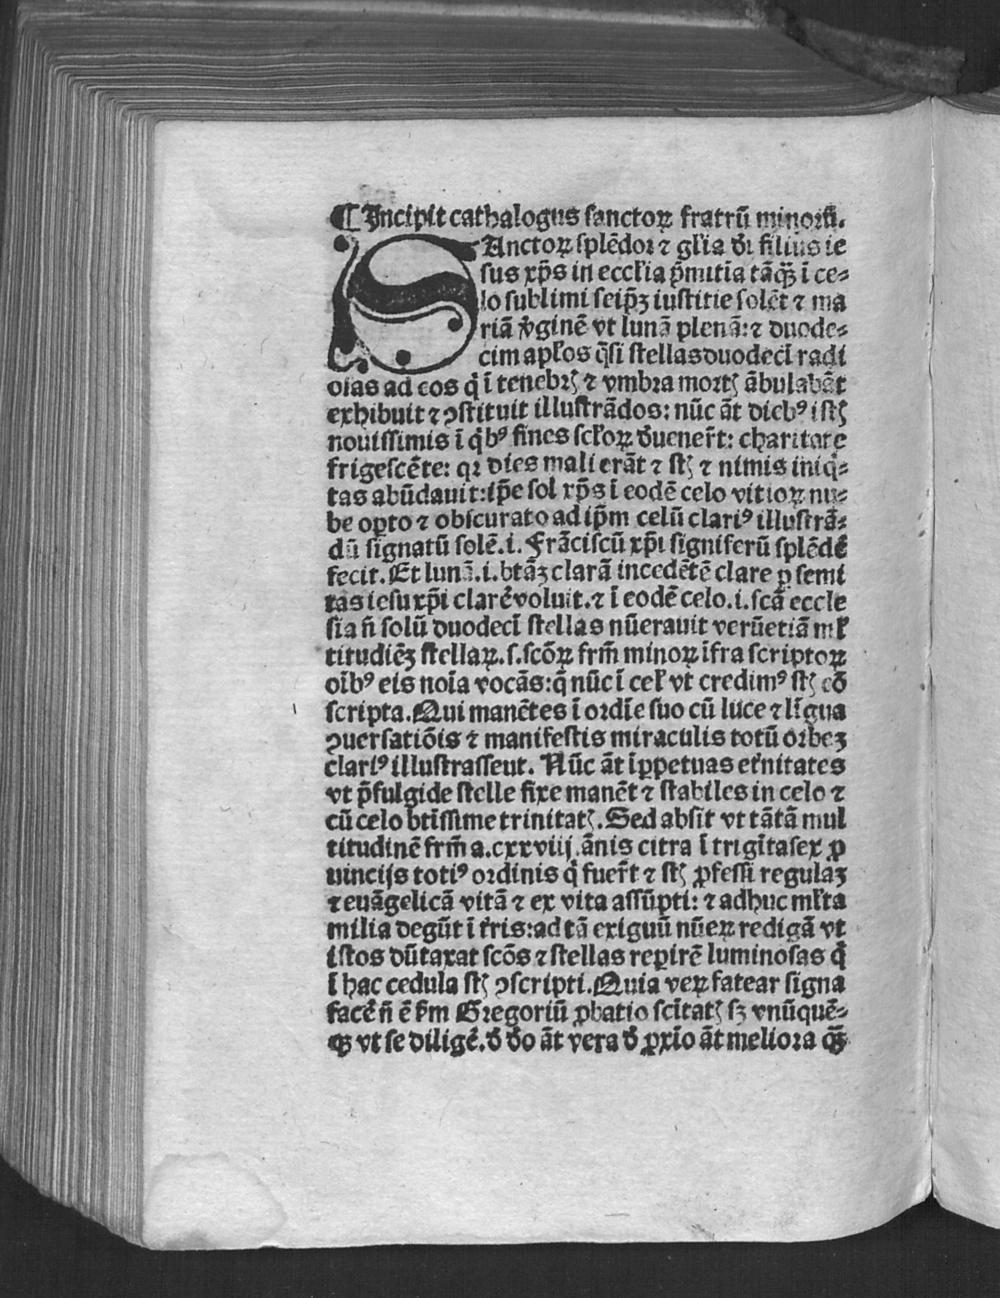 ¶ Incipit cathalogus sanctoꝝ fratrū minorū.
SAnctoꝝ splēdor ⁊ glīa dī filius ie
sus xp̄s in eccłia p̄mitīa tāꝙ̄ ī ce⸗
lo sublimi seip̄ꝫ iustitie solēt ⁊ ma
riā v̓ginē vt lunā plenā:⁊ duode⸗
cim apłos q̄si stellas duodecī radi
oſas ad eos q̄ ī tenebrꝭ ⁊ vmbra mortꝭ ābulabāt
exhibuit ⁊ ꝯstituit illustrādos: nūc āt diebꝰ istꝭ
nouissimis ī qͥbꝰ fines scłoꝝ dueneꝛt: charitate
frigescēte: qꝛ dies mali erāt ⁊ stꝭ ⁊ nimis iniqͥ⸗
tas abūdauit:ip̄e sol xp̄s ī eodē celo vitioꝝ nu⸗
be oꝑto ⁊ obscurato ad ip̄m celū clariꝰ illustrā⸗
dū signatū solē.i. Frāciscū xp̄i signiferū splēdē
fecit. Et lunā.i.btāꝫ clarā incedētē clare ꝑ semi
tas iesu xp̄i claꝛ̄e voluit.⁊ ī eodē celo.i.scā eccle
sia n̄ solū duodecī stellas nūerauit verūetiā mł
titudiēꝫ stellaꝝ.s.scōꝝ frm̄ minoꝝ īfra scriptoꝝ
oībꝰ eis noīa vocās:q̄ nūc ī cel̄ vt credimꝰ stꝭ eo
scripta. Qui manētes ī ordīe suo cū luce ⁊ līgua
ꝯuersatiōis ⁊ manifestis miraculis totū orbeꝫ
clariꝰ illustrasseut. Nūc āt īꝑpetuas et̓nitates
vt p̄fulgide stelle fixe manēt ⁊ stabiles in celo ⁊
cū celo btissime trinitatꝭ. Sed absit vt tātā mul
titudinē frm̄ a.cxxviij.ānis citra ī trigītasex ꝓ
uincijs totiꝰ ordinis q̄ fueꝛt ⁊ stꝭ ꝓfessi regulaꝫ
⁊ euāgelicā vitā ⁊ ex vita assūpti: ⁊ adhuc młta
milia degūt ī t̓ris:ad tā exiguū nūeꝝ redigā vt
istos dūtaxat scōs ⁊ stellas reꝑirē luminosas q̄
ī hac cedula stꝭ ꝯscripti. Quia veꝝ fatear signa
facē n̄ ē fm̄ Gregoriū ꝓbatio scītatꝭ sꝫ vnūquē⸗
qꝫ vt se diligē. d̄ d̄o āt vera d̄ ꝓxīo āt meliora ꝙ̄